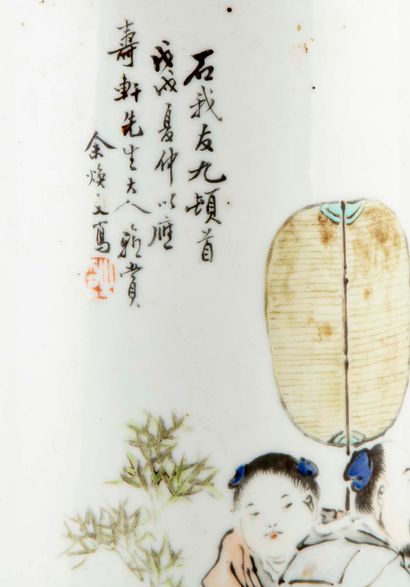 石我友九頓首
戊戌夏仲以應
壽軒先生大人雅賞
余煥文寫